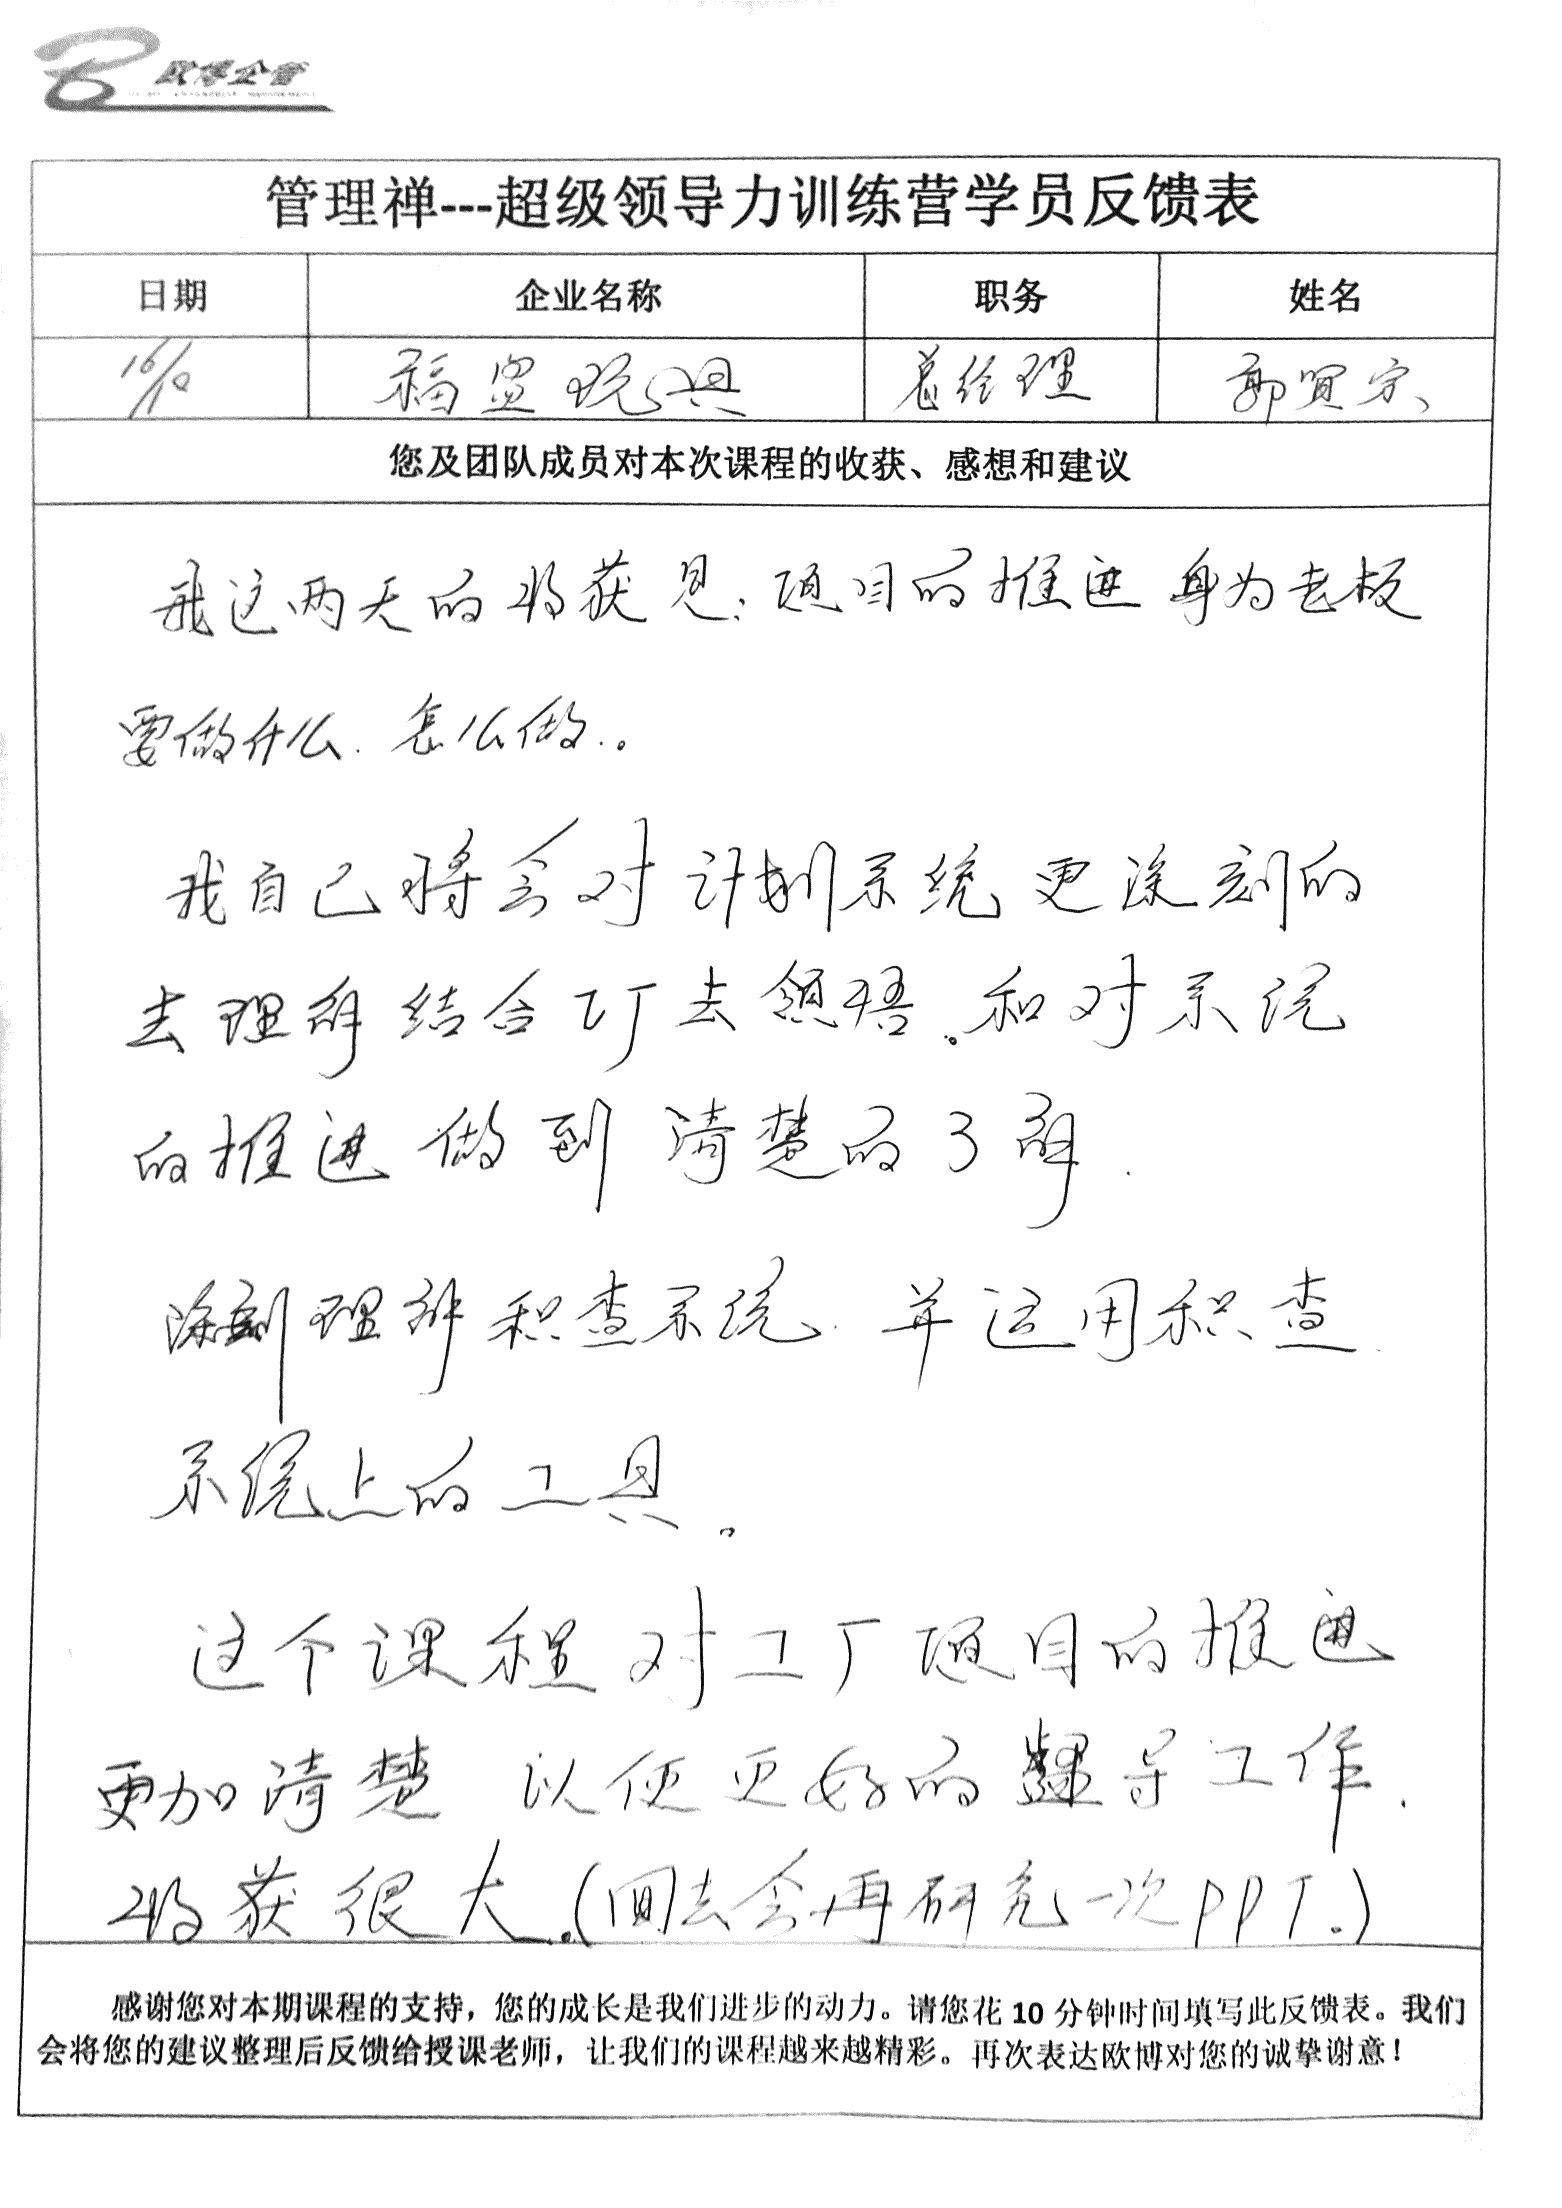 欧博企管
管理禅---超级领导力训练营学员反馈表
日期 企业名称 职务 姓名
16/10 福 玩具 总经理 郭
您及团队成员对本次课程的收获、感想和建议
我这两天的收获是:项目的推进 身为老板
要做什么.怎么做.。
我自己将会对计划系统更深刻的
去理解结合工厂去领悟。和对系统
的推进做到清楚的了解.
深刻理解积查系统.并运用积查.
系统上的工具。
这个课程对工厂项目的推进
更加清楚 以便更好的 导工作.
收获很大。(回去会再研究一次PPT.)
感谢您对本期课程的支持，您的成长是我们进步的动力。请您花10分钟时间填写此反馈表。我们
会将您的建议整理后反馈给授课老师，让我们的课程越来越精彩。再次表达欧博对您的诚挚谢意！